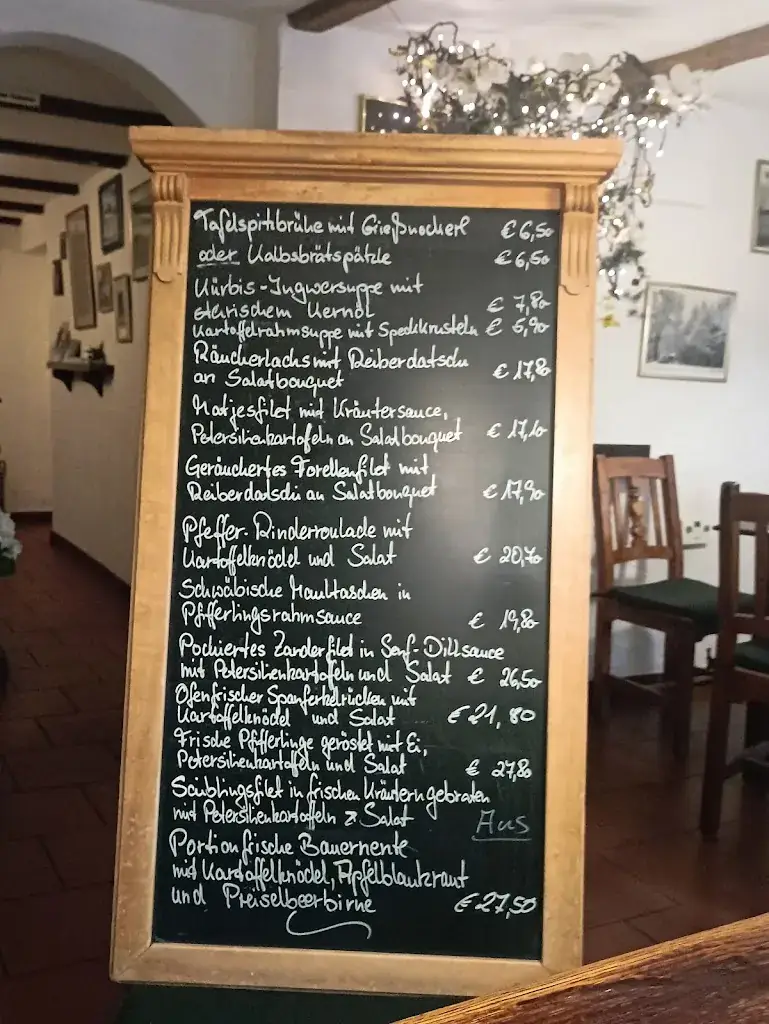 Tafelspitzbrühe mit Grießnockerl € 6,50
oder Kalbsbrätspätzle € 6,50
Kürbis-Ingwersuppe mit
steirischem Kernöl € 7,80
Kartoffelrahmsuppe mit Speckkrusteln € 5,90
Räucherlachs mit Reiberdatschi
an Salatbouquet € 17,80
Matjesfilet mit Kräutersauce,
Petersilienkartoffeln an Salatbouquet € 17,10
Geräuchertes Forellenfilet mit
Reiberdatschi an Salatbouquet € 17,90
Pfeffer-Rinderroulade mit
Kartoffelknödel und Salat € 20,70
Schwäbische Maultaschen in
Pfifferlingsrahmsauce € 19,80
Pochiertes Zanderfilet in Senf-Dillsauce
mit Petersilienkartoffeln und Salat € 26,50
Ofenfrischer Spanferkelrücken mit
Kartoffelknödel und Salat € 21,80
Frische Pfifferlinge geröstet mit Ei,
Petersilienkartoffeln und Salat € 27,80
Saiblingsfilet in frischen Kräutern gebraten
mit Petersilienkartoffeln & Salat Aus
Portion frische Bauernente
mit Kartoffelknödel, Apfelblaukraut
und Preiselbeerbirne € 27,50